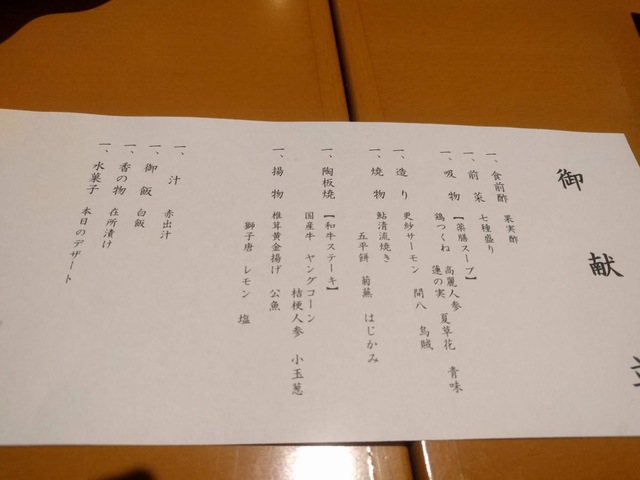 御献立
一、食前酢 果実酢
一、前菜 七種盛り
一、吸物 【薬膳スープ】 高麗人参 夏草花 青味
鶏つくね 蓮の実
一、造り 更紗サーモン 間八 烏賊
一、焼物 鮎清流焼き
五平餅 菊蕪 はじかみ
一、陶板焼 【和牛ステーキ】
国産牛 ヤングコーン
桔梗人参 小玉葱
一、揚物 椎茸黄金揚げ 公魚
獅子唐 レモン 塩
一、汁 赤出汁
一、御飯 白飯
一、香の物 在所漬け
一、水菓子 本日のデザート